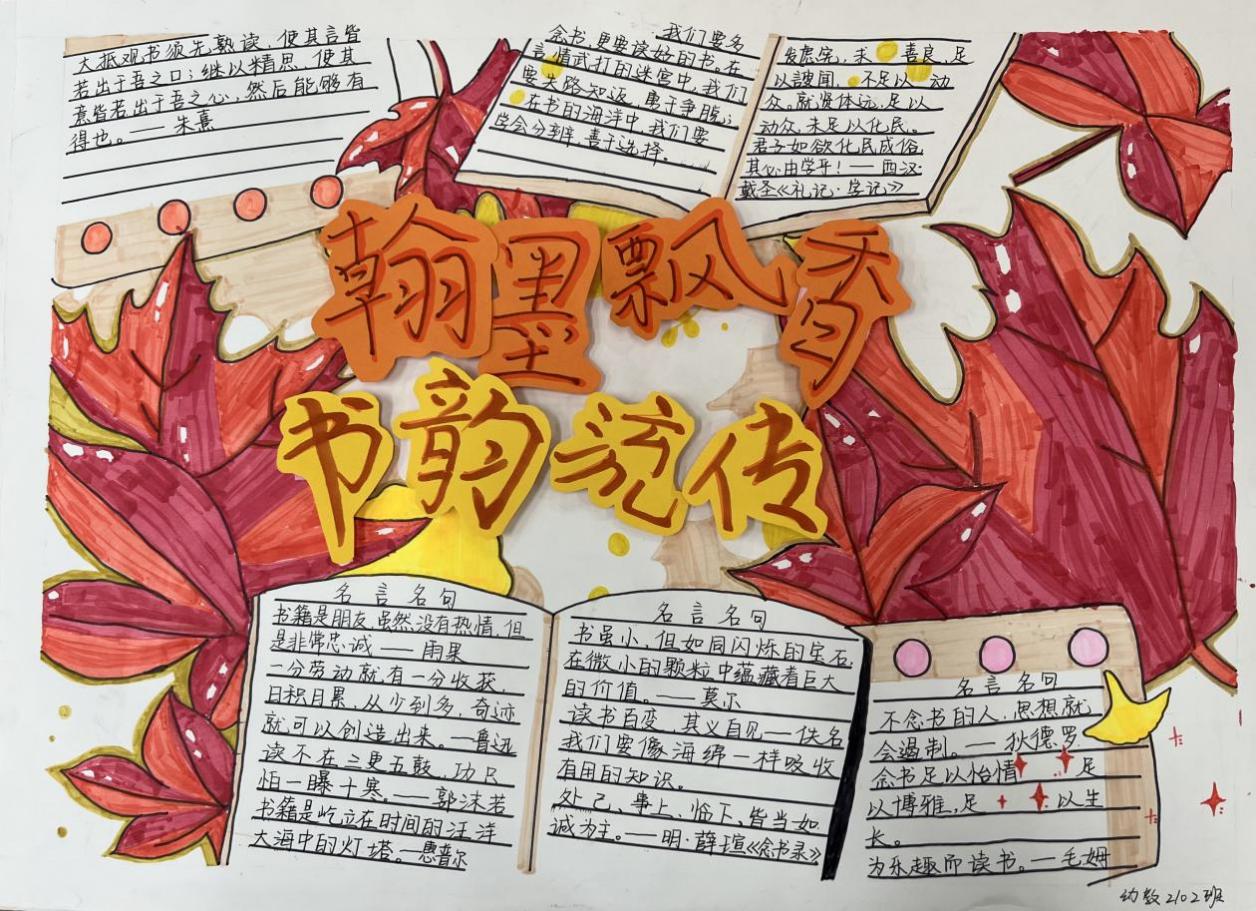 大抵观书须先熟读，使其言皆
若出于吾之口；继以精思，使其
意皆若出于吾之心，然后能够有
得也。——朱熹
我们要多
念书，更要读好的书。在
言情武打的迷宫中，我们
要失路知返，勇于争脱；
在书的海洋中，我们要
学会分辨，善于选择。
发虑宪，求善良，足
以謏闻，不足以动
众。就贤体远，足以
动众，未足以化民。
君子如欲化民成俗，
其必由学乎！——西汉·
戴圣《礼记·学记》
翰墨飘香
书韵流传
名言名句
书籍是朋友，虽然没有热情，但
是非常忠诚——雨果
一分劳动就有一分收获，
日积月累，从少到多，奇迹
就可以创造出来。——鲁迅
读不在三更五鼓，功只
怕一曝十寒。——郭沫若
书籍是屹立在时间的汪洋
大海中的灯塔。——惠普尔
名言名句
书虽小，但如同闪烁的宝石，
在微小的颗粒中蕴藏着巨大
的价值。——莫尔
读书百变，其义自见——佚名
我们要像海绵一样吸收
有用的知识。
处己、事上、临下，皆当如
诚为主。——明·薛瑄《念书录》
名言名句
不念书的人，思想就
会遏制。——狄德罗
念书足以怡情，足
以博雅，足以生
长。
为乐趣而读书。——毛姆
幼教2102班